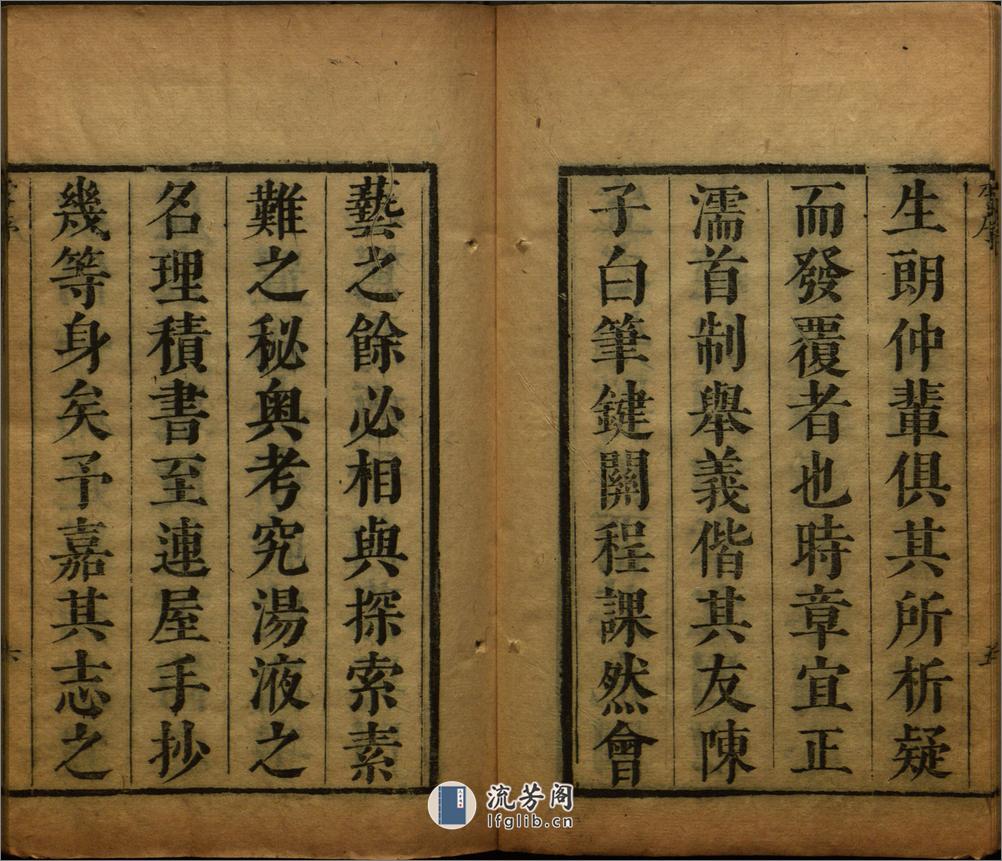 生朗仲輩俱其所析疑
而發覆者也時章宜正
濡首制舉義偕其友陳
子白筆鍵關程課然會
五
藝之餘必相與探索素
難之秘奧考究湯液之
名理積書至連屋手抄
幾等身矣予嘉其志之
六
流芳阁
lfglib.cn